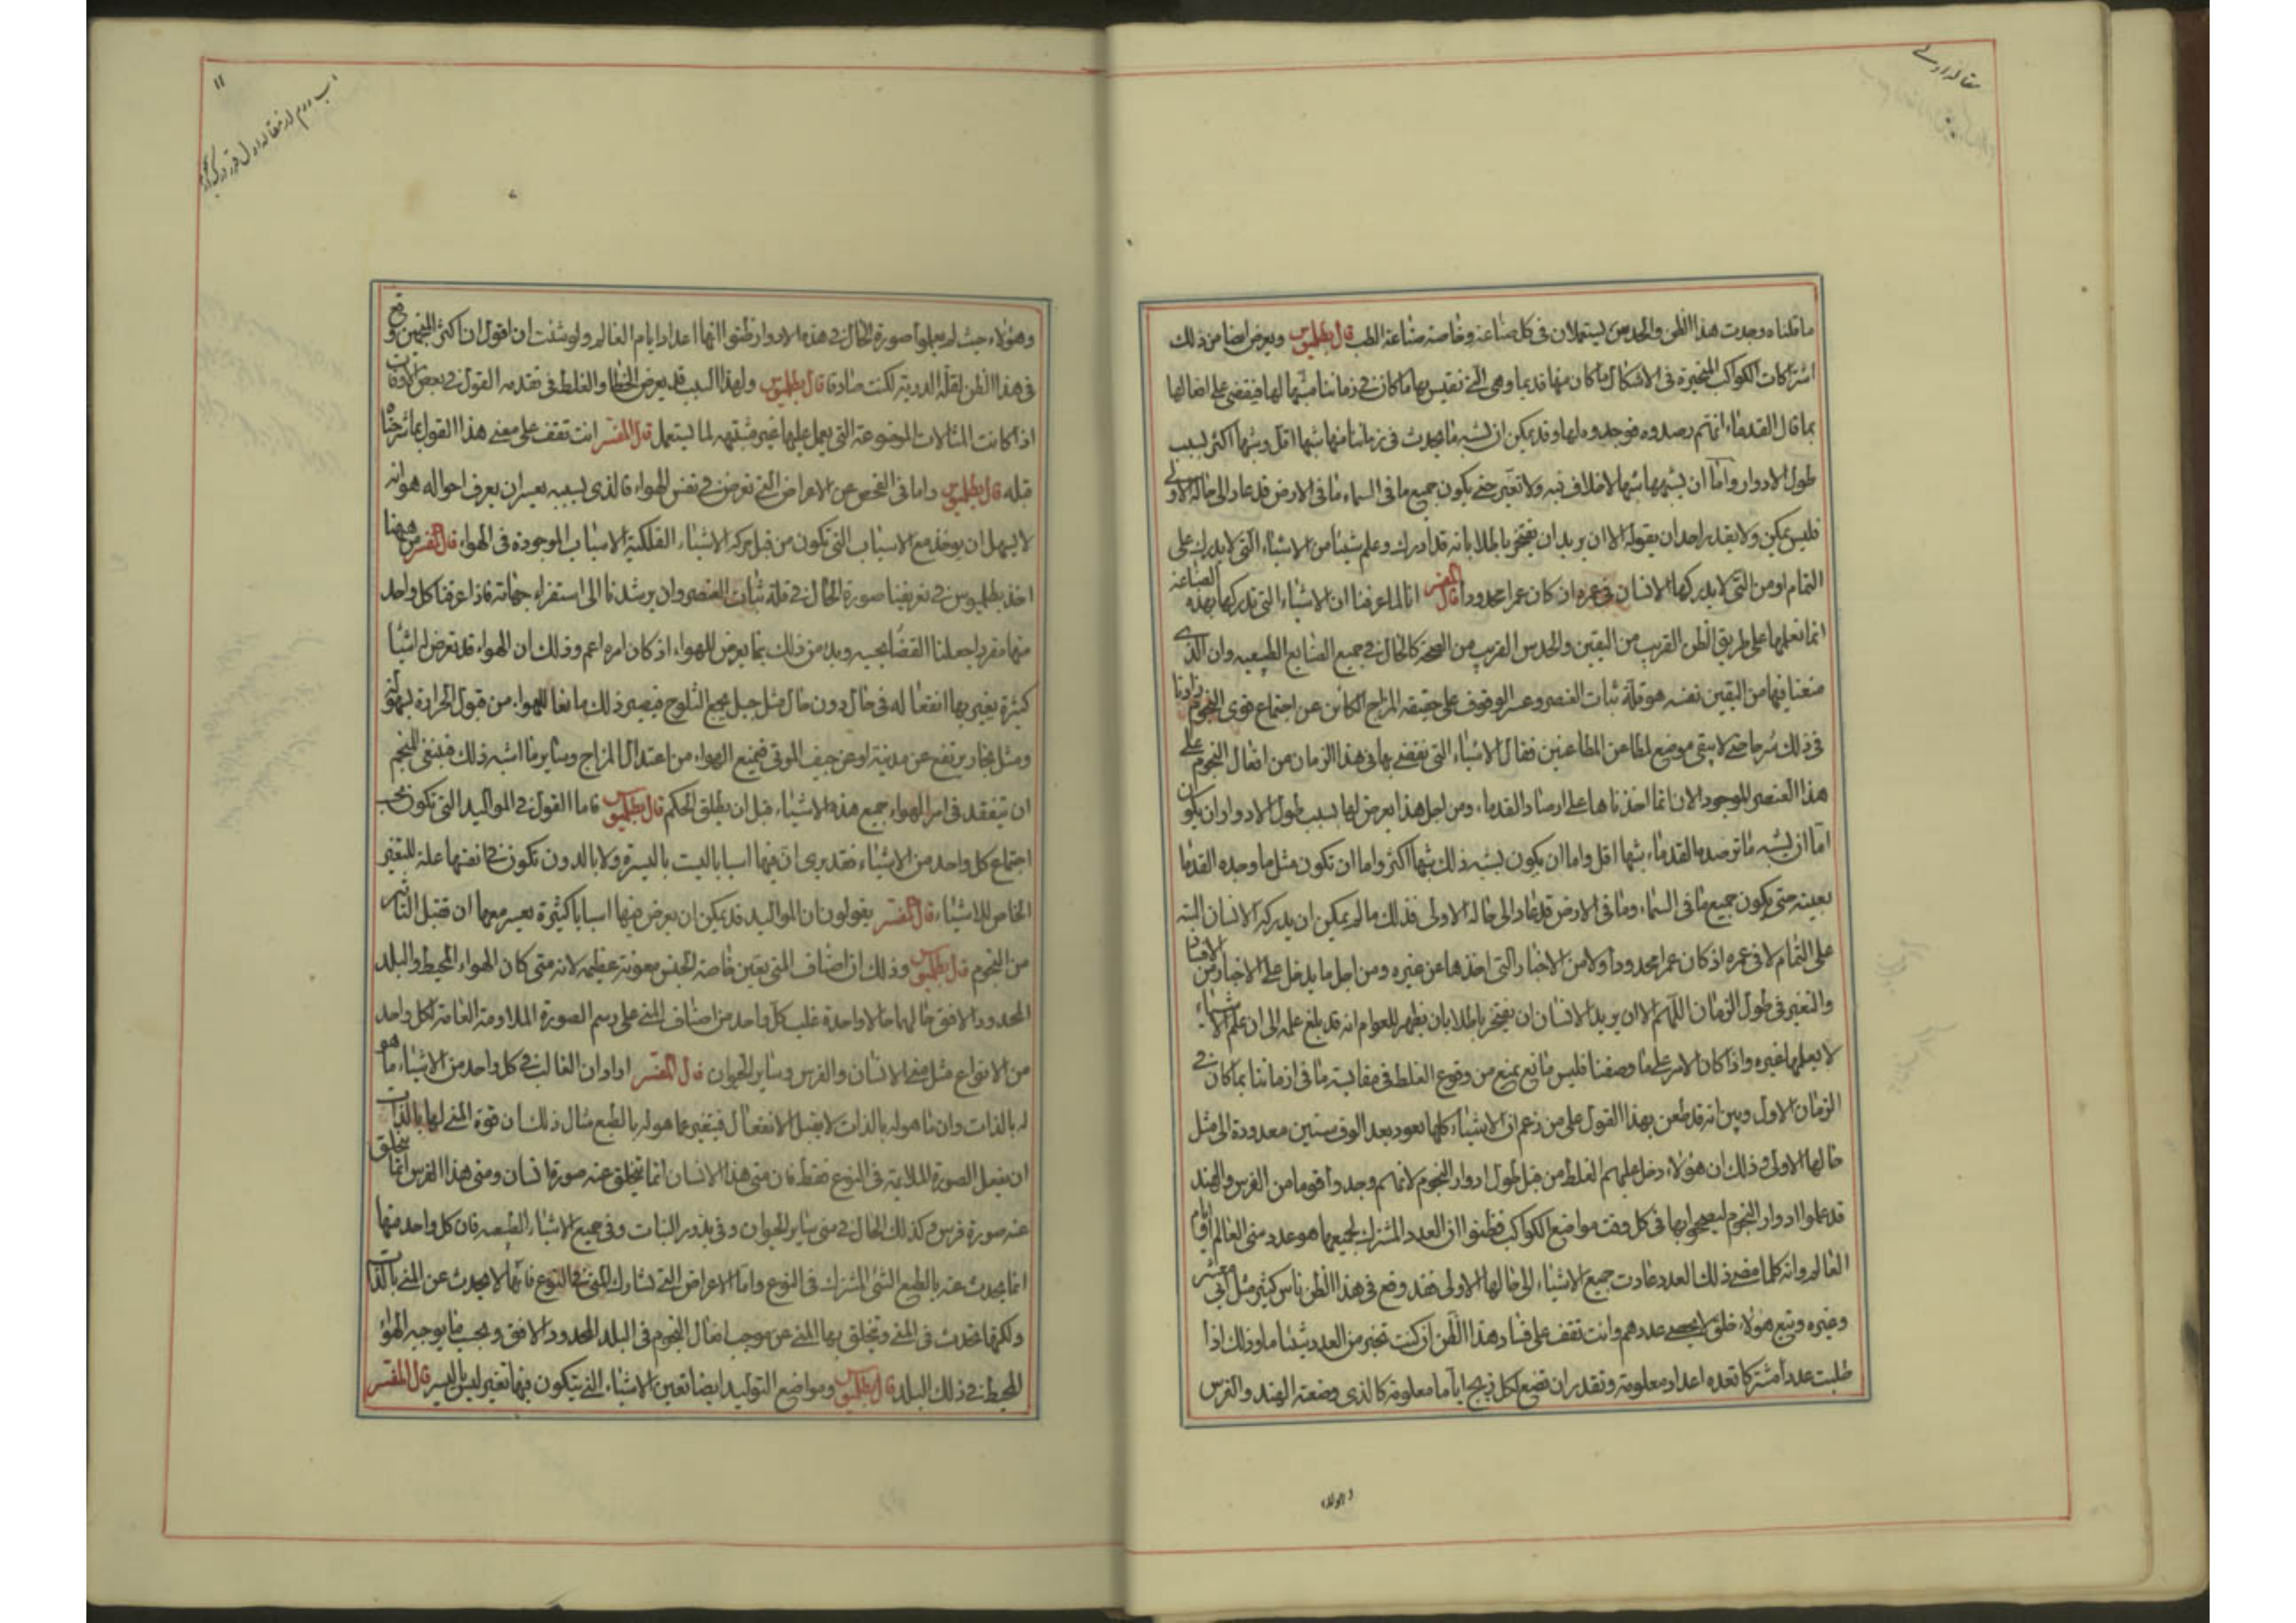 مقاله اولے
ما قلناه وجدت هذا الظن والحدس يستعملان فى كل صناعة وخاصة صناعة الطب قال بطلميوس ويعرض ايضا من ذلك
اشتراكات الكواكب المتحيرة فى الاشكال ما كان منها قديما وهى التے نقيس بها ما كان فے زماننا مشبها لها فيقضى على افعالها
بما قال القدماء انهم رصدوه فوجدوه لها وقد يمكن ان يشبه ما يحدث فى زماننا منها شبها اقل وشبها اكثر بسبب
طول الادوار واما ان يشبهها شبها لا خلاف فيه ولا تغير حتے يكون جميع ما فى السماء وما فى الارض قد عاد الى حاله الاولے
فليس يمكن ولا يقدر احد ان يقوله الا ان يريد ان يفتخر باطلا بانه قد ادرك وعلم شيئا من الاشياء التى لا يدرك على
التمام او من التى لا يدركها الانسان فى عمره ان كان عمرا محدودا قال المفسر انا لما عرفنا ان الاشياء التى ندركها بهذه الصناعة
انما نعلمها على طريق الظن القريب من اليقين والحدس القريب من الصحة كالحال فے جميع الصنايع الطبيعيه وان الذے
منعنا فيها من اليقين نفسه هو قلة ثبات العنصر وعسر الوقوف على حقيقة المزاج الكائن عن اجتماع قوى النجوم زادنا
فى ذلك شرحا حتے لا يبقى موضع لمطاعن المطاعنين فقال الاشياء التى نقضے بها فى هذا الزمان من افعال النجوم علے
هذا العنصر الموجود الان انما اخذناها على ارصاد القدماء ومن اجل هذا يعرض لها بسبب طول الادوار ان يكون
اما ان يشبه ما ترصده القدماء شبها اقل واما ان يكون يشبه ذلك شبها اكثر واما ان تكون مثل ما وجده القدما
بعينه حتى يكون جميع ما فى السماء وما فى الارض قد عاد الى حاله الاولى فذلك ما لم يمكن ان يدركه الانسان البتة
على التمام لا فى عمره اذ كان عمرا محدودا ولا من الاخبار التى اخذها عن غيره ومن اجل ما يدخل على الاخبار من
والتغير فى طول الزمان اللهم الا ان يريد الانسان ان يفتخر باطلا بان يظهر للعوام انه قد بلغ علمه الى ان علم الاشياء
لا يعلمها غيره واذا كان الامر على ما وصفنا فليس مانع يمنع من وقوع الغلط فى مقايسة ما فى ازماننا بما كان فے
الزمان الاول وبين انه قد طعن بهذا القول على من زعم ان الاشياء كلها يعود بعد الوف سنين معدودة الى مثل
حالها الاولى وذلك ان هؤلاء دخل عليهم الغلط من قبل طول ادوار النجوم لانهم وجدوا قوما من الفرس والهند
قد عملوا ادوار النجوم ليصححوا بها فى كل وقت مواضع الكواكب فظنوا ان العدد المشترك لجميعها هو عدد سنى العالم
العالم وانه كلما مضے ذلك العدد عادت جميع الاشياء الى حالها الاولى فقد وقع فى هذا الظن ناس كثير مثل ابى معشر
وغيره وتبع هؤلاء خلق لا يحصے عددهم وانت تقف على فساد هذا الظن ان كنت تخبر من العدد شيئا ما وذلك اذا
طلبت عددا مشتركا تعده اعداد معلومة وتقدر ان تضع لكل زيج اياما معلومة كالذى وضعته الهند والفرس
۱۱
وهؤلاء حيث لم يعلموا صورة الحال فے هذه الادوار ظنوا انها اعداد ايام العالم ولو شئت ان اقول ان اكثر المنجمين وقع
فى هذا الظن لقلة الدربة لكنت صادقا قال بطلميوس ولهذا السبب قد يعرض الخطا والغلط فى تقدمه القول فے بعض الاوقات
اذا كانت المثالات الموضوعة التى يعمل عليها غير مشتبهه لما يستعمل قال المفسر انت تقف على معنے هذا القول بما شرحناه
قبله قال بطلميوس واما فى الفحص عن الاعراض التے تعرض فے نفس الهواء فالذى بسببه يعسر ان يعرف احواله هو انه
لا يسهل ان يوخذ مع الاسباب التى تكون من قبل حركة الاشياء الفلكية الاسباب الموجودة فى الهواء قال المفسر من ههنا
اخذ بطلميوس فے تعريفنا صورة الحال فے قلة ثبات العنصر وان يرشدنا الى استقراء جهاته فاذا عرفنا كل واحد
منها مفردا جعلنا القضا بحسبه وبدء من ذلك بما يعرض للهواء اذ كان امره اعم وذلك ان الهواء قد تعرض له اشيا
كثيرة يغير بها انفعاله فى حال دون حال مثل جبل يجمع الثلوج فيصير ذلك مانعا للهواء من قبول الحرارة بسهولة
ومثل بخار يرتفع عن مدينة او عن جيف الموتى فيمنع الهواء من اعتدال المزاج وساير ما اشبه ذلك فينبغى للمنجم
ان يتفقد فى امر الهواء جميع هذه الاشياء قبل ان يطلق الحكم قال بطلميوس فاما القول فے المواليد التى تكون بحسب
اجتماع كل واحد من الاشياء فقد يرى ان فيها اسبابا ليست باليسيرة ولا بالدون تكون فے انفسها علة للتغير
الخاص للاشياء قال المفسر يقولون ان المواليد قد يمكن ان يعرض فيها اسبابا كثيرة يعسر معها ان تقبل التاثير
من النجوم قال بطلميوس وذلك ان اصناف المنى يعين خاصة الجنس معونة عظيمة لانه متى كان الهواء المحيط والبلد
المحدود الافق حالهما حالا واحدة غلب كل واحد من اصناف المنے على رسم الصورة الملاومة العامة لكل واحد
من الانواع مثل منے الانسان والفرس وساير الحيوان قال المفسر اراد ان الغالب فے كل واحد من الاشياء ما هو
له بالذات وان ما هو له بالذات لا يقبل الانفعال فيتغير عما هو له بالطبع مثال ذلك ان قوة المنے لها بالذات
ان يفعل الصورة الملايمة فى النوع فقط فان منى هذا الانسان انما يتخلق عنه صورة انسان ومنى هذا الفرس انما يتخلق
عنه صورة فرس وكذلك الحال فے منى ساير الحيوان وفى بذور النبات وفى جميع الاشياء الطبيعيه فان كل واحد منها
انما يحدث عنه بالطبع الشئ المشترك فى النوع واما الاعراض التے تشارك المنى فے النوع فانها لا يحدث عن المنے بالذات
ولكنها تحدث فى المنے ويتخلق بها المنے عن موجب افعال النجوم فى البلد المحدود الافق وبحسب ما يوجبه الهواء
المحيط فے ذلك البلد قال بطلميوس ومواضع التوليد ايضا تعين الاشياء التے يتكون فيها تغير ليس باليسير قال المفسر